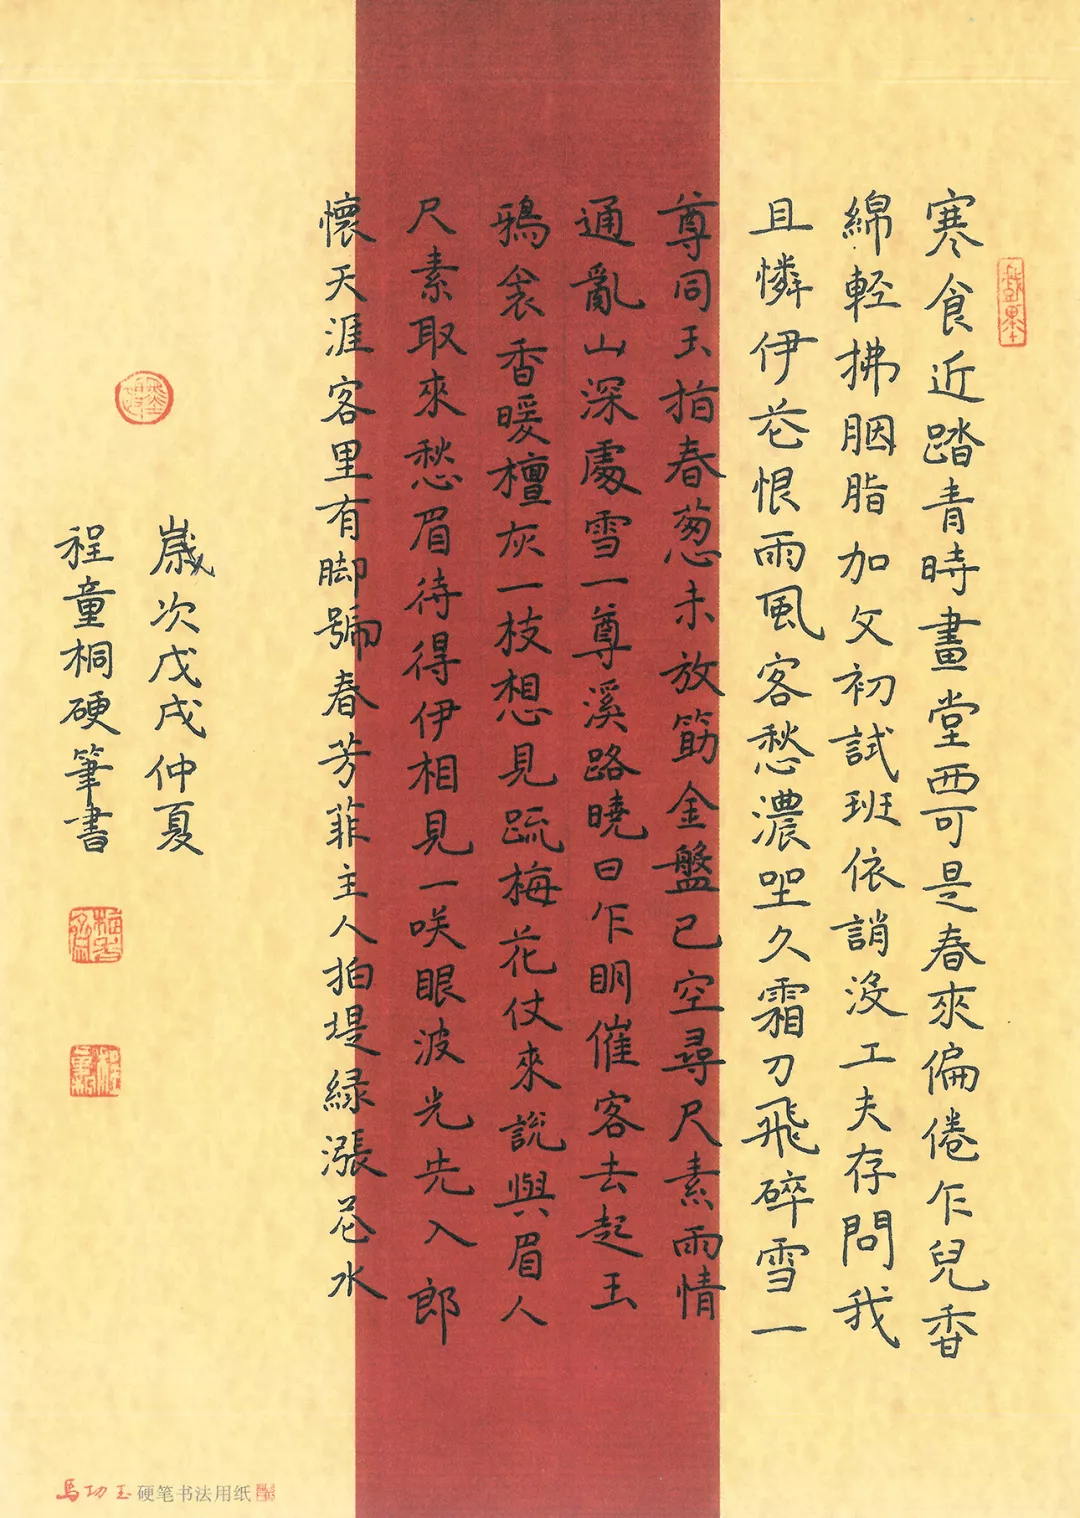 寒食近踏青時畫堂西可是春來偏倦乍兒香
綿輕拂胭脂加文初試班依誚沒工夫存問我
且憐伊花恨雨風客愁濃坐久霜刀飛碎雪一
尊同玉指春蔥未放筯金盤已空尋尺素雨情
通亂山深處雪一尊溪路曉日乍明催客去起玉
鴉衾香暖檀灰一枝想見疏梅花仗來說與眉人
尺素取來愁眉待得伊相見一咲眼波光先入郎
懷天涯客里有脚號春芳菲主人拍堤緑漲花水
歲次戊戌仲夏
程童桐硬筆書
馬功玉硬笔书法用纸